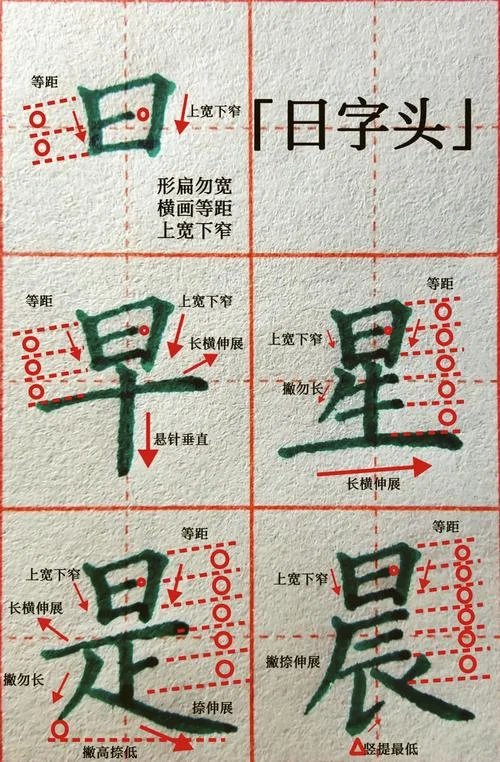 等距
日
上宽下窄
「日字头」
形扁勿宽
横画等距
上宽下窄
等距
早
上宽下窄
长横伸展
悬针垂直
等距
星
上宽下窄
撇勿长
长横伸展
等距
是
上宽下窄
长横伸展
撇勿长
捺伸展
撇高捺低
等距
晨
上宽下窄
撇捺伸展
竖提最低